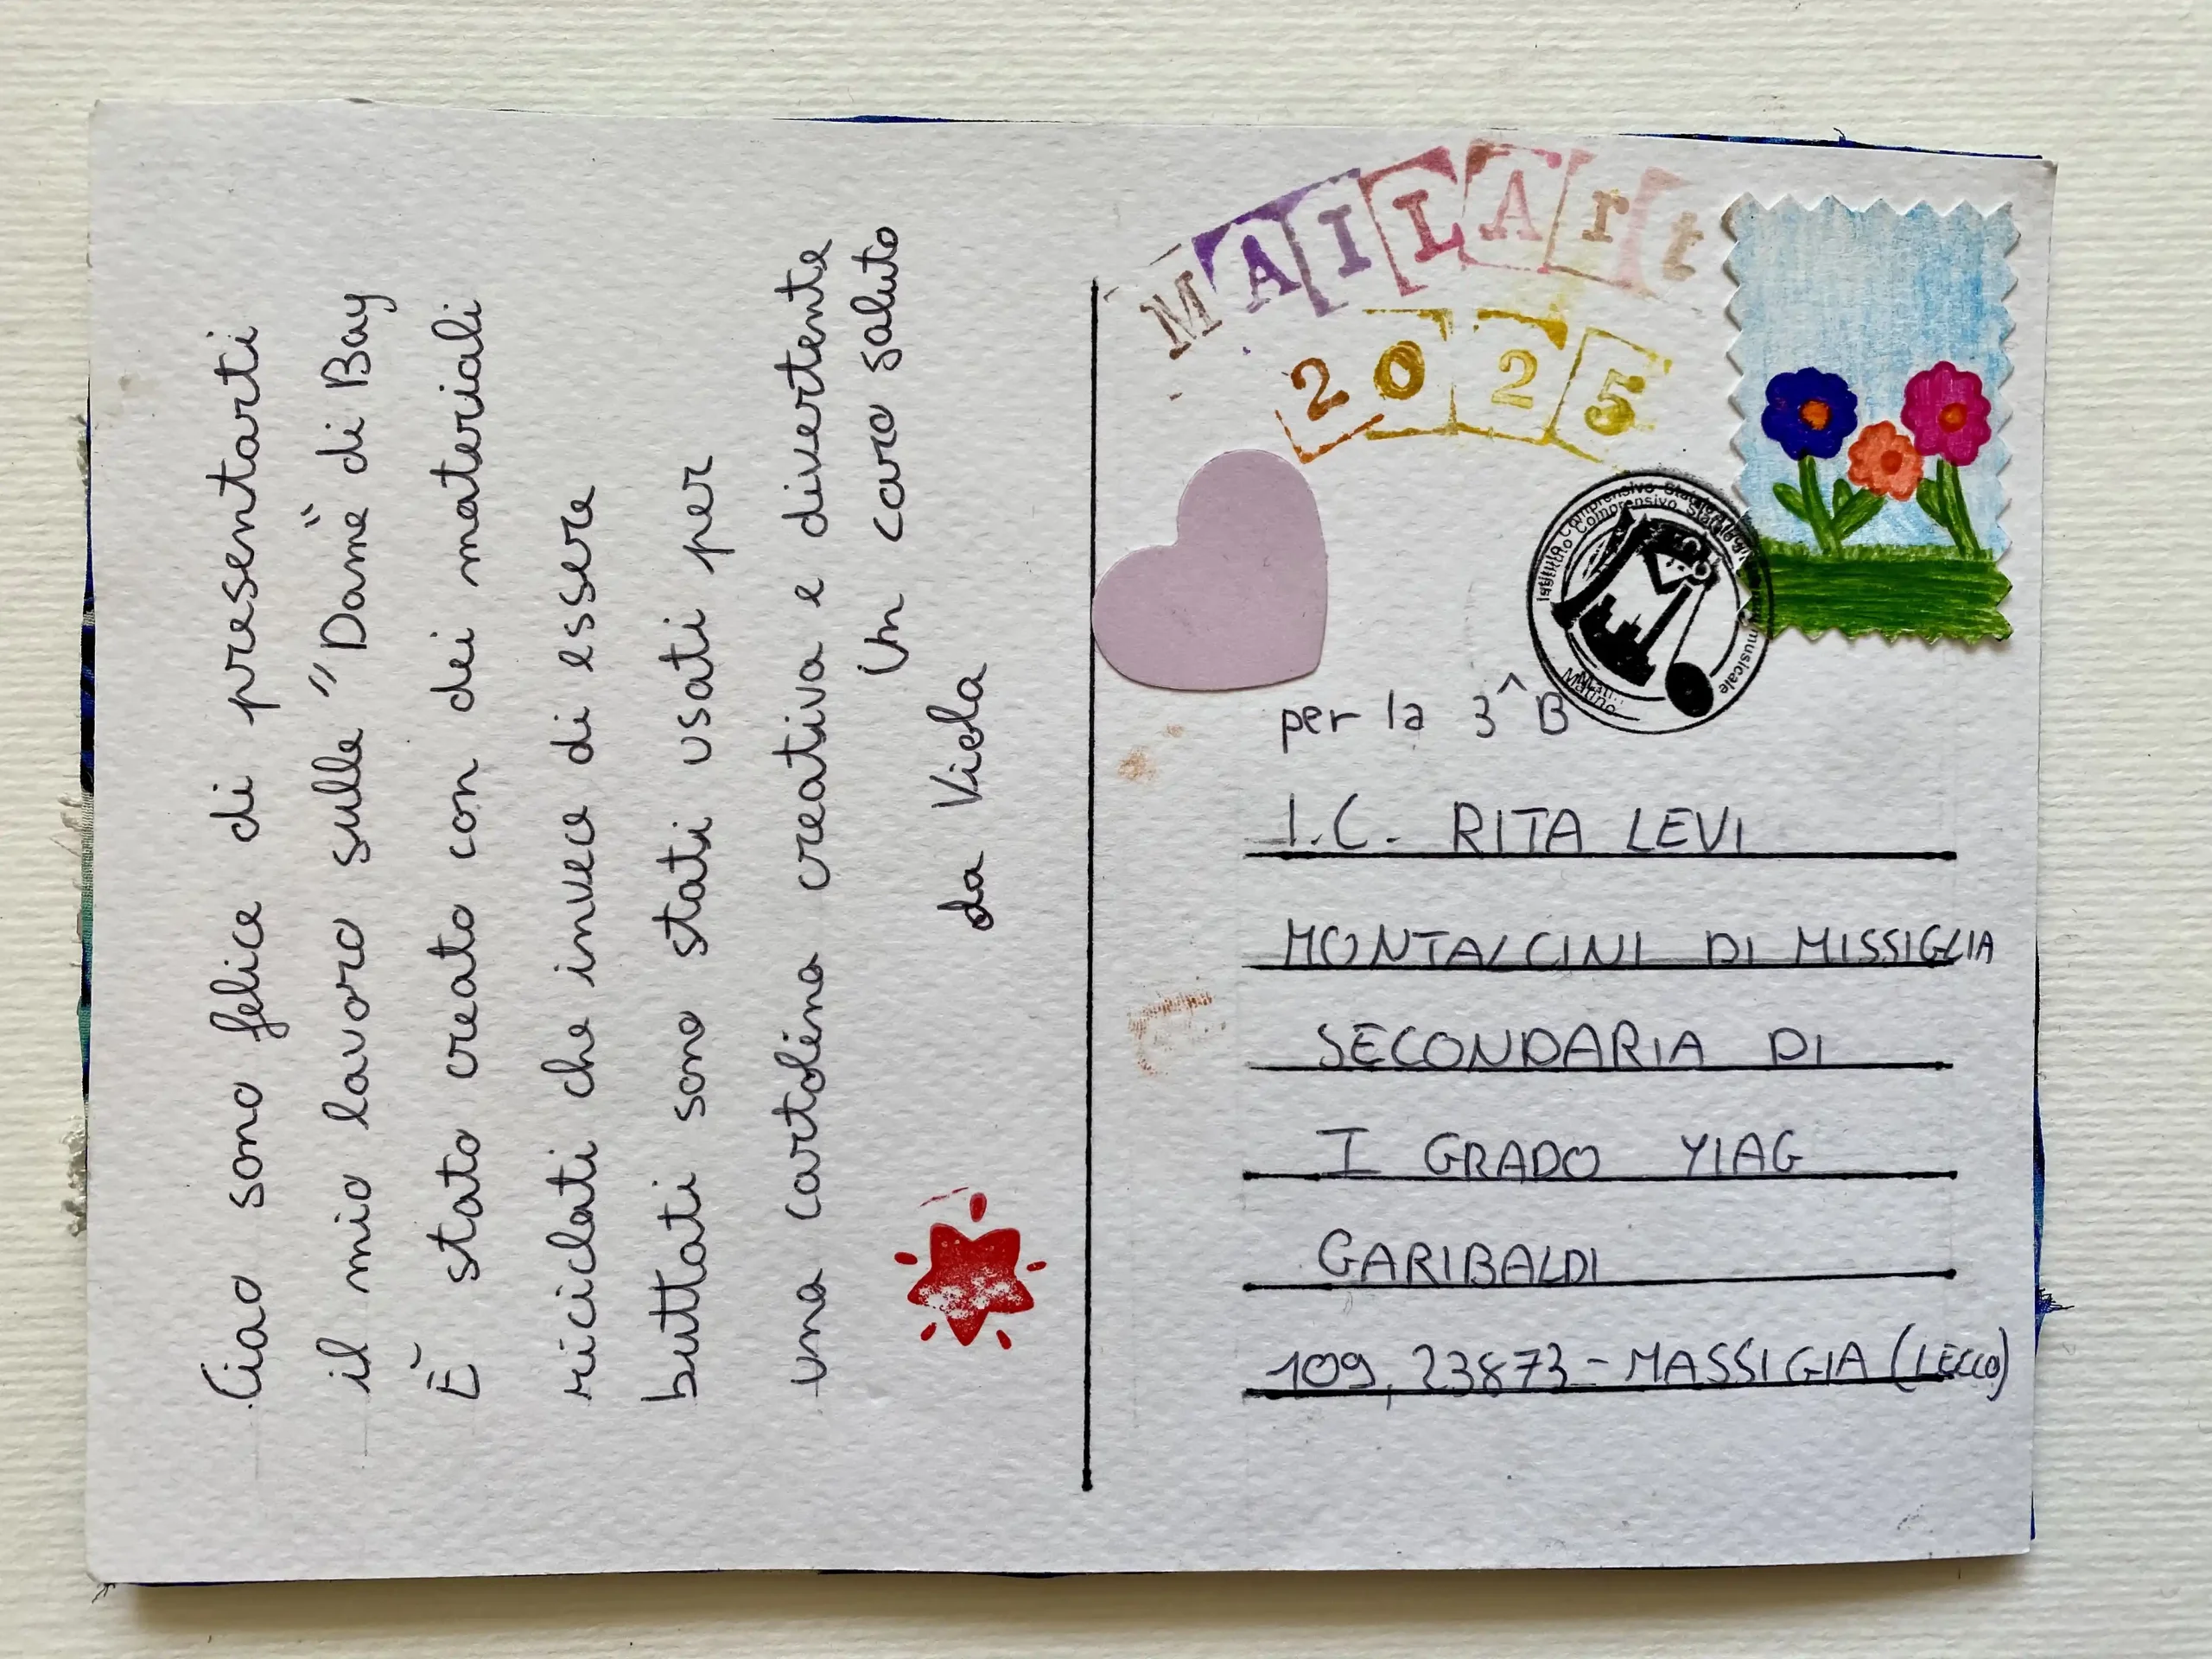 Ciao sono felice di presentarti
il mio lavoro sulle "Dame" di Bay
È stato creato con dei materiali
riciclati che invece di essere
buttati sono stati usati per
una cartolina creativa e divertente
Un caro saluto
da Viola
MAILArt
2025
per la 3^B
I.C. RITA LEVI
MONTALCINI DI MISSIGLIA
SECONDARIA DI
I GRADO YIAG
GARIBALDI
109, 23873 - MASSIGIA (LECCO)
Istituto Comprensivo Statale
musicale
Matino